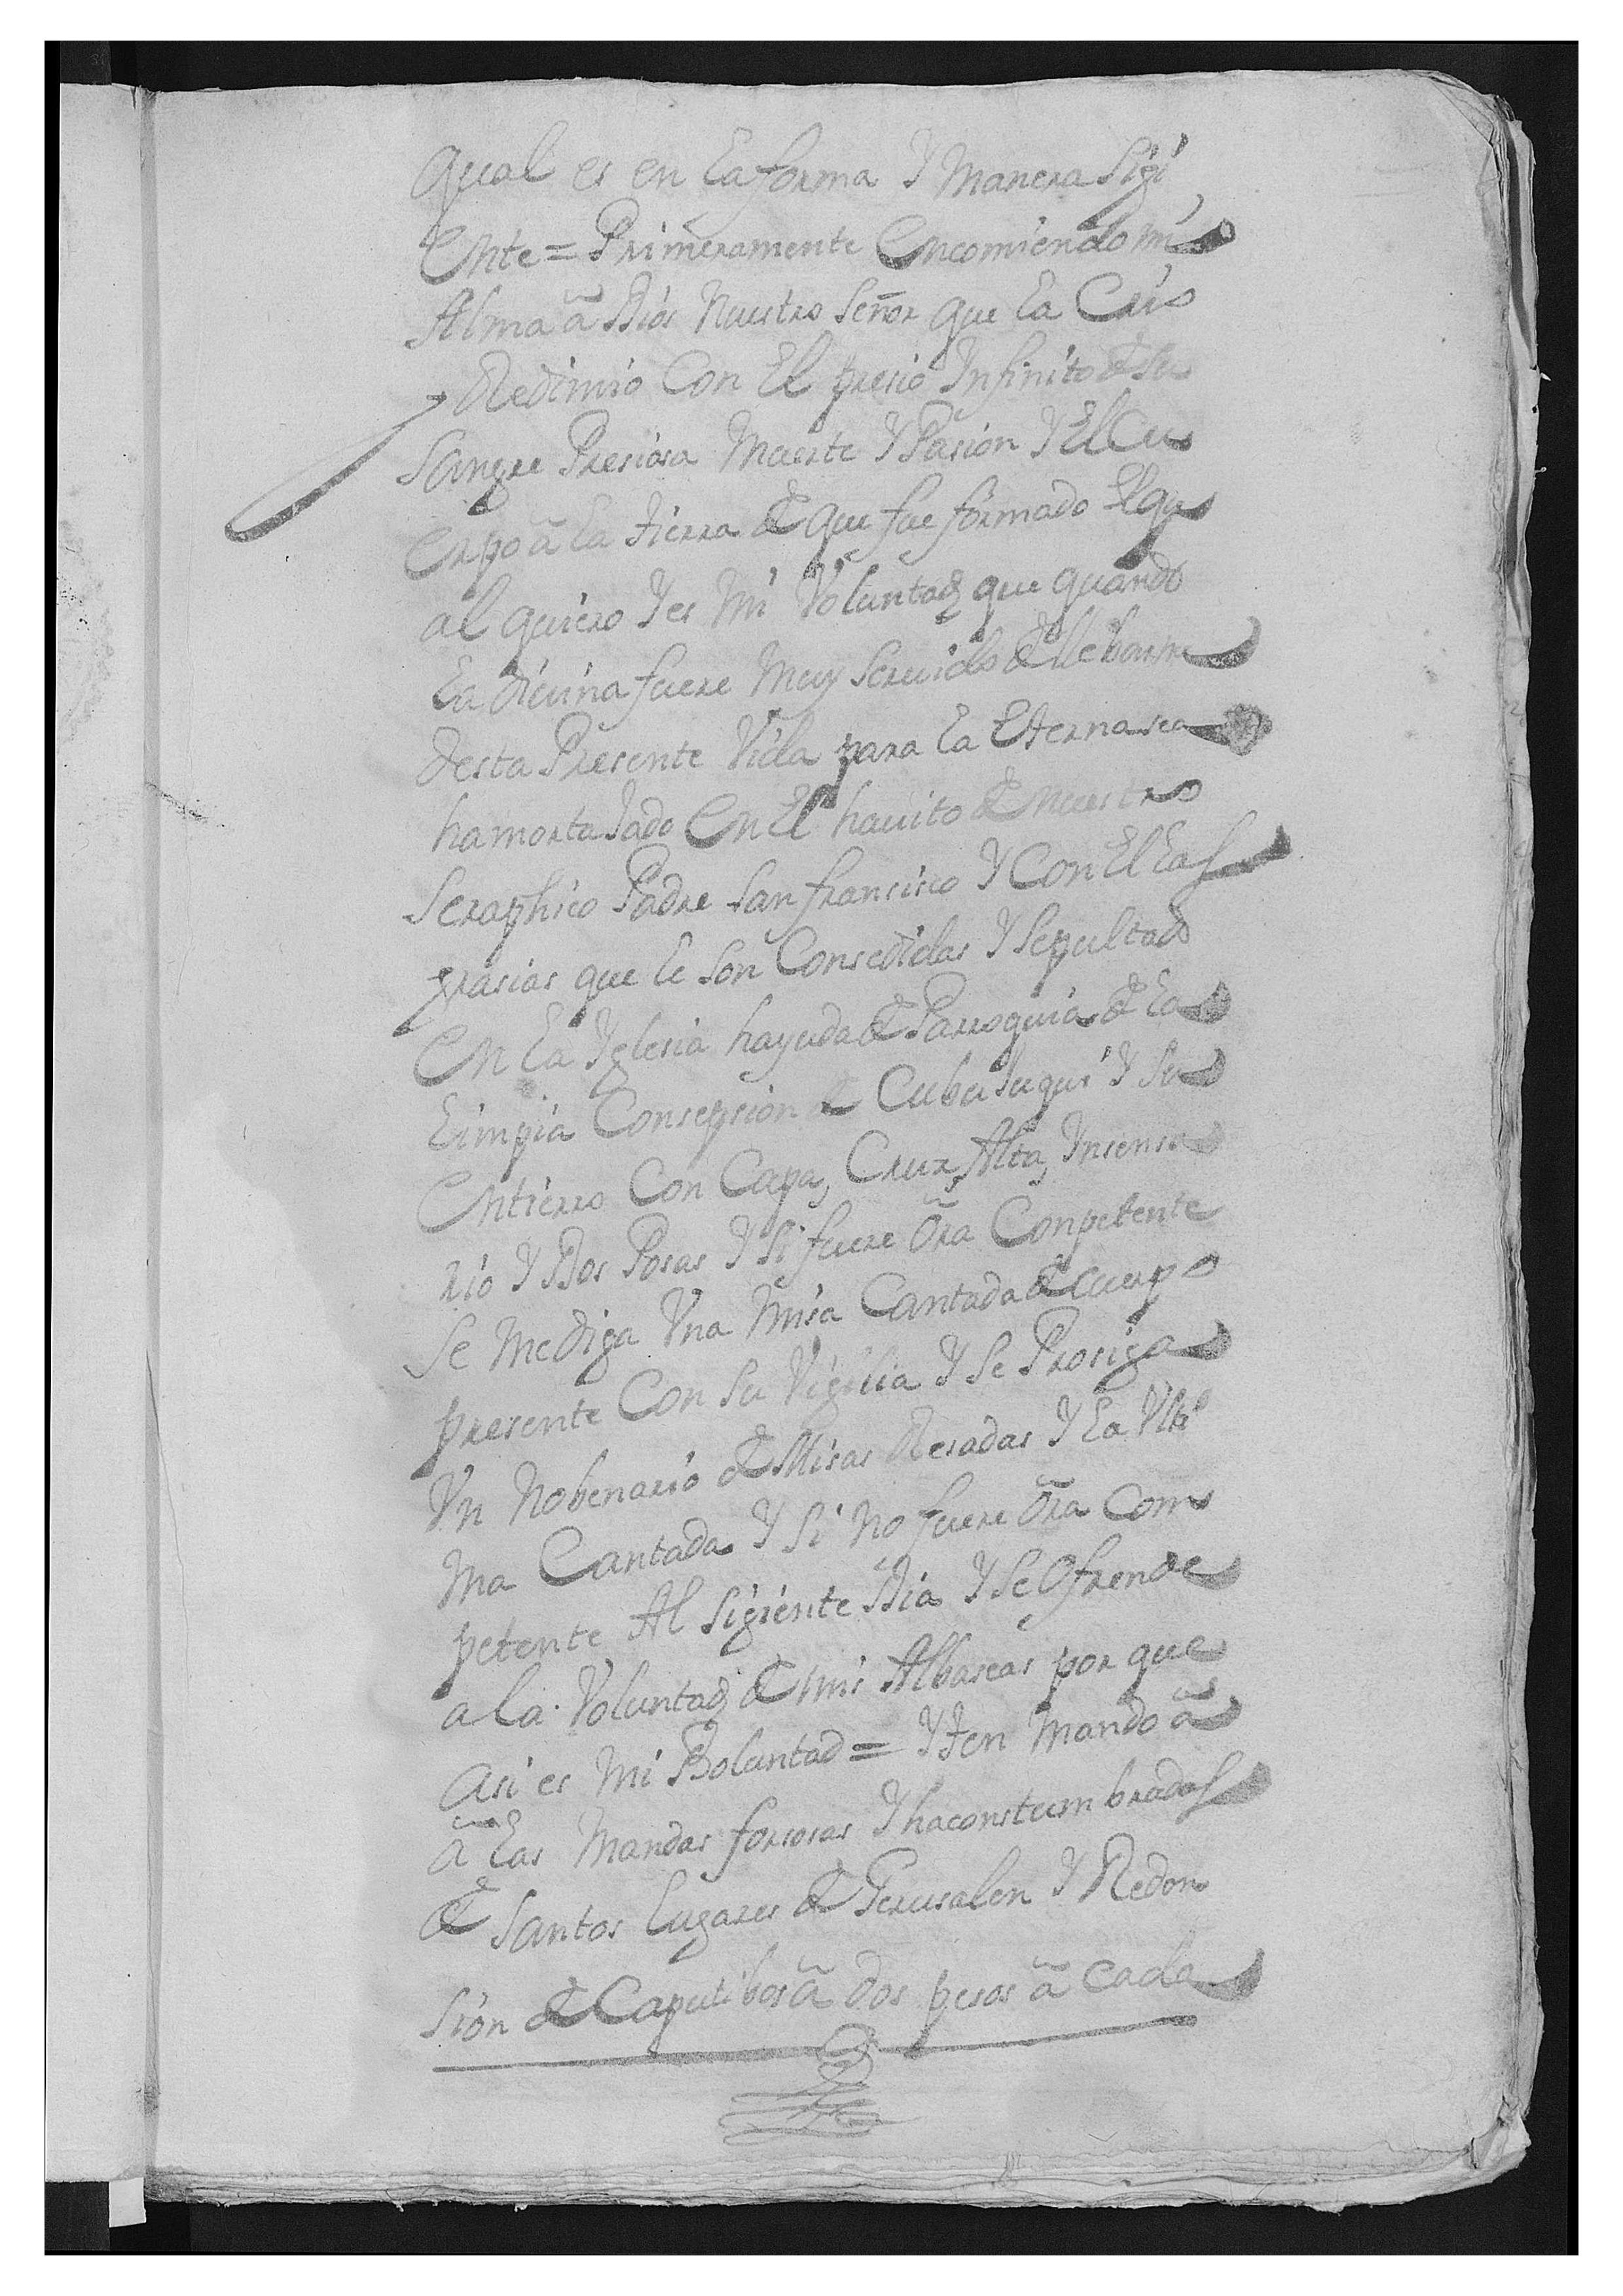 qual es en la forma Y Manera Sigi
Ente = Primeramente Encomiendo mi
Alma â Dios Nuestro Señor que la Crio
Redimio Con El presio Ynfinito de su
Sangre Presiosa Muerte Y Pasion Y El Cu
Erpo â la tierra de que fue formado El qu
al quiero Y es Mi Voluntad que quando
la diuina fuere Muy Seruido de llebarme
desta Presente Vida para la Eterna sea
hamortajado En El hauito de nuestro
Seraphico Padre San francisco Y Con El las
grasias que le son Consedidas Y Sepultado
En la Yglesia hayuda de Parroquia de la
Limpia Consepsion de Cubujuqui Y Su
Entierro Con Capa, Crux Alta, Ynsensa
rio Y Dos Posas Y Si fuere Õra Conpetente
Se me diga Vna Misa Cantada de cuerpo
presente Con Su Vigilia Y Se Prosiga
Vn Nobenario de Misas Resadas Y la Vlti
ma Cantada Y Si No fuere Õra Com
petente Al Sigiente Dia Y Se Ofrende
a la Voluntad de mis Albaseas por que
Asi es Mi Boluntad = Yten Mando â
â las Mandas forsosas Y haconstumbradas
de Santos lugares de Gerusalen Y Redon
sion de Caputibos â dos pesos â Cada